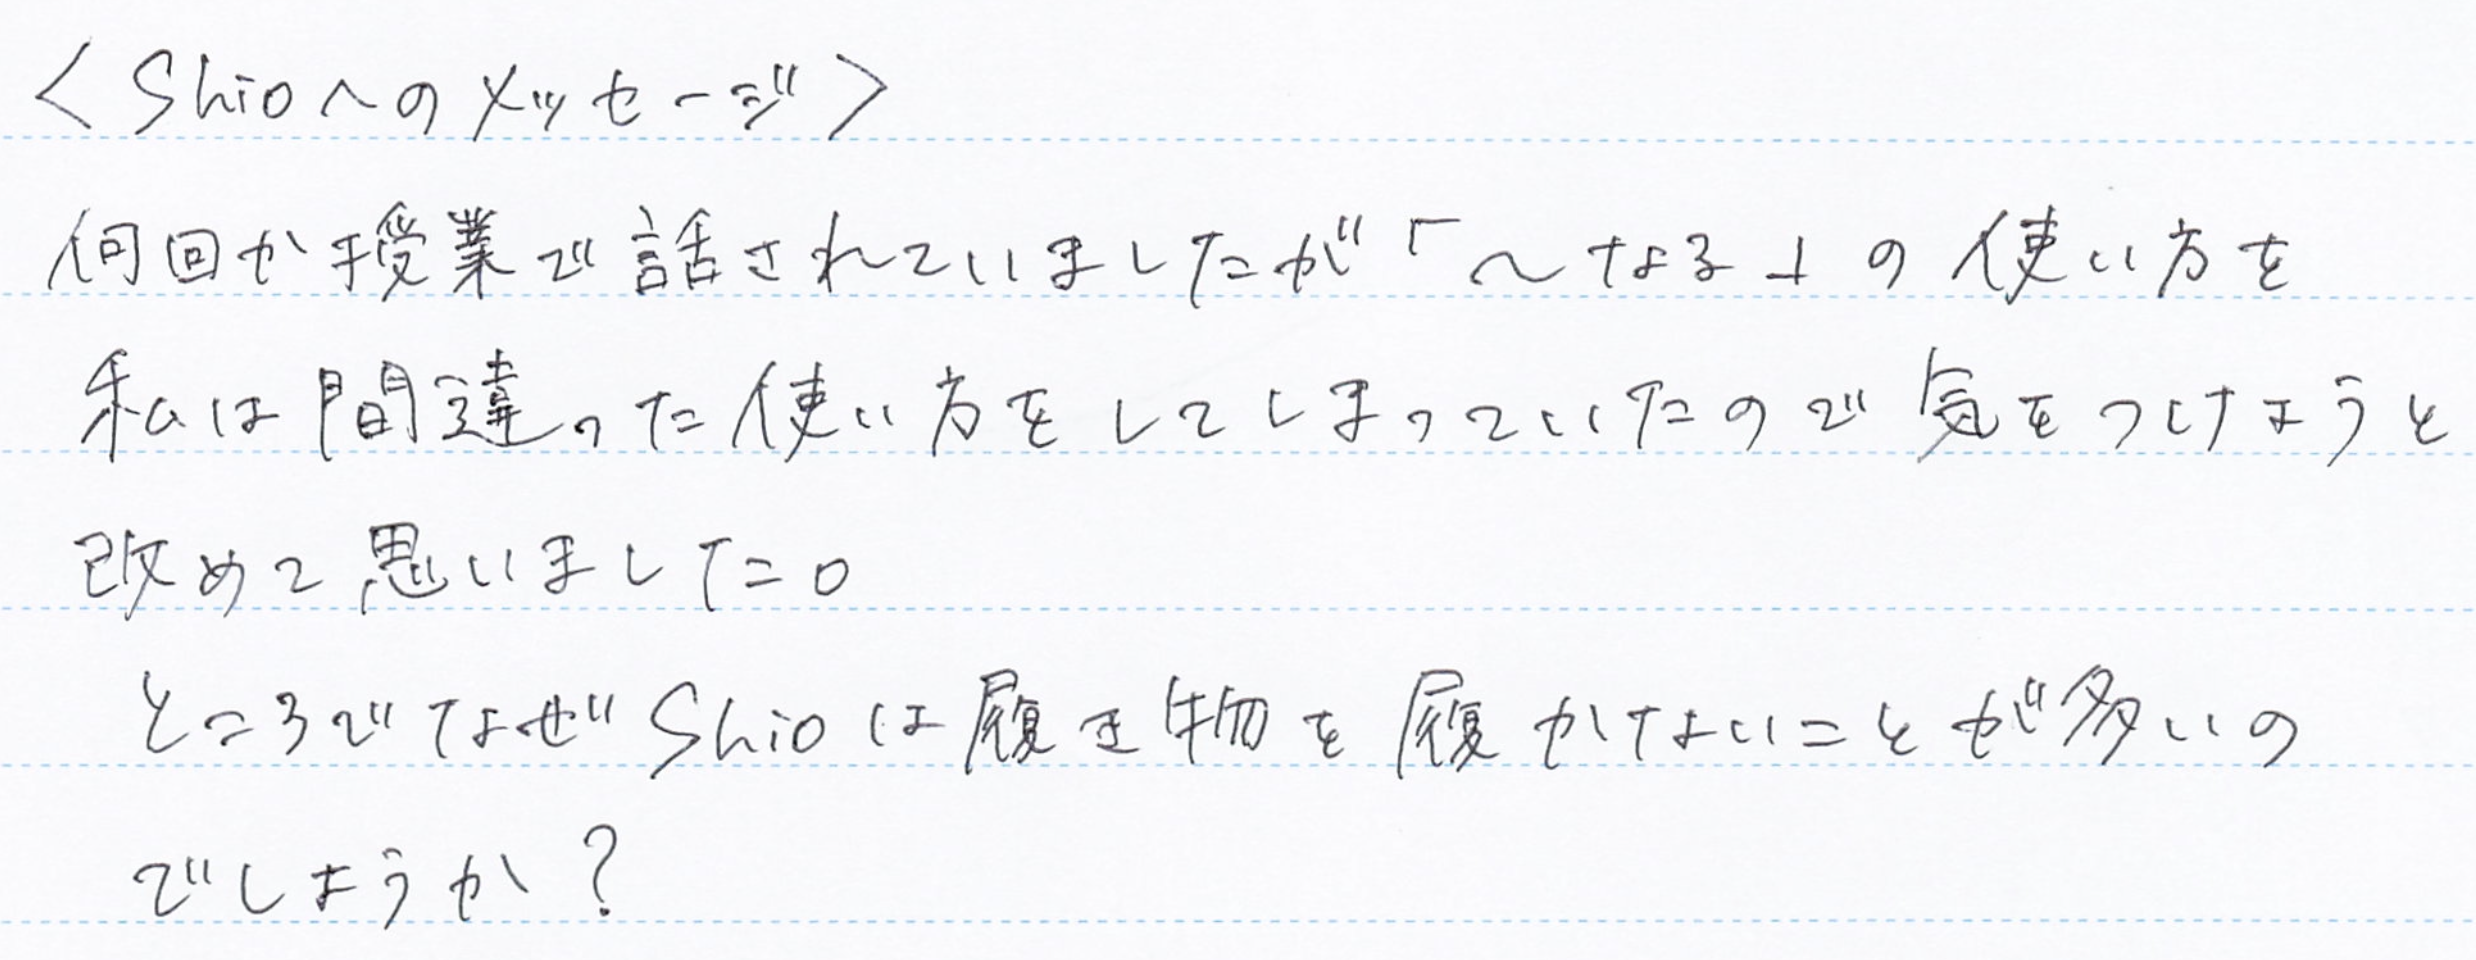 <Shioへのメッセージ>
何回か授業で話されていましたが「～なる」の使い方を
私は間違った使い方をしてしまっていたので気をつけようと
改めて思いました。
ところでなぜShioは履き物を履かないことが多いの
でしょうか?